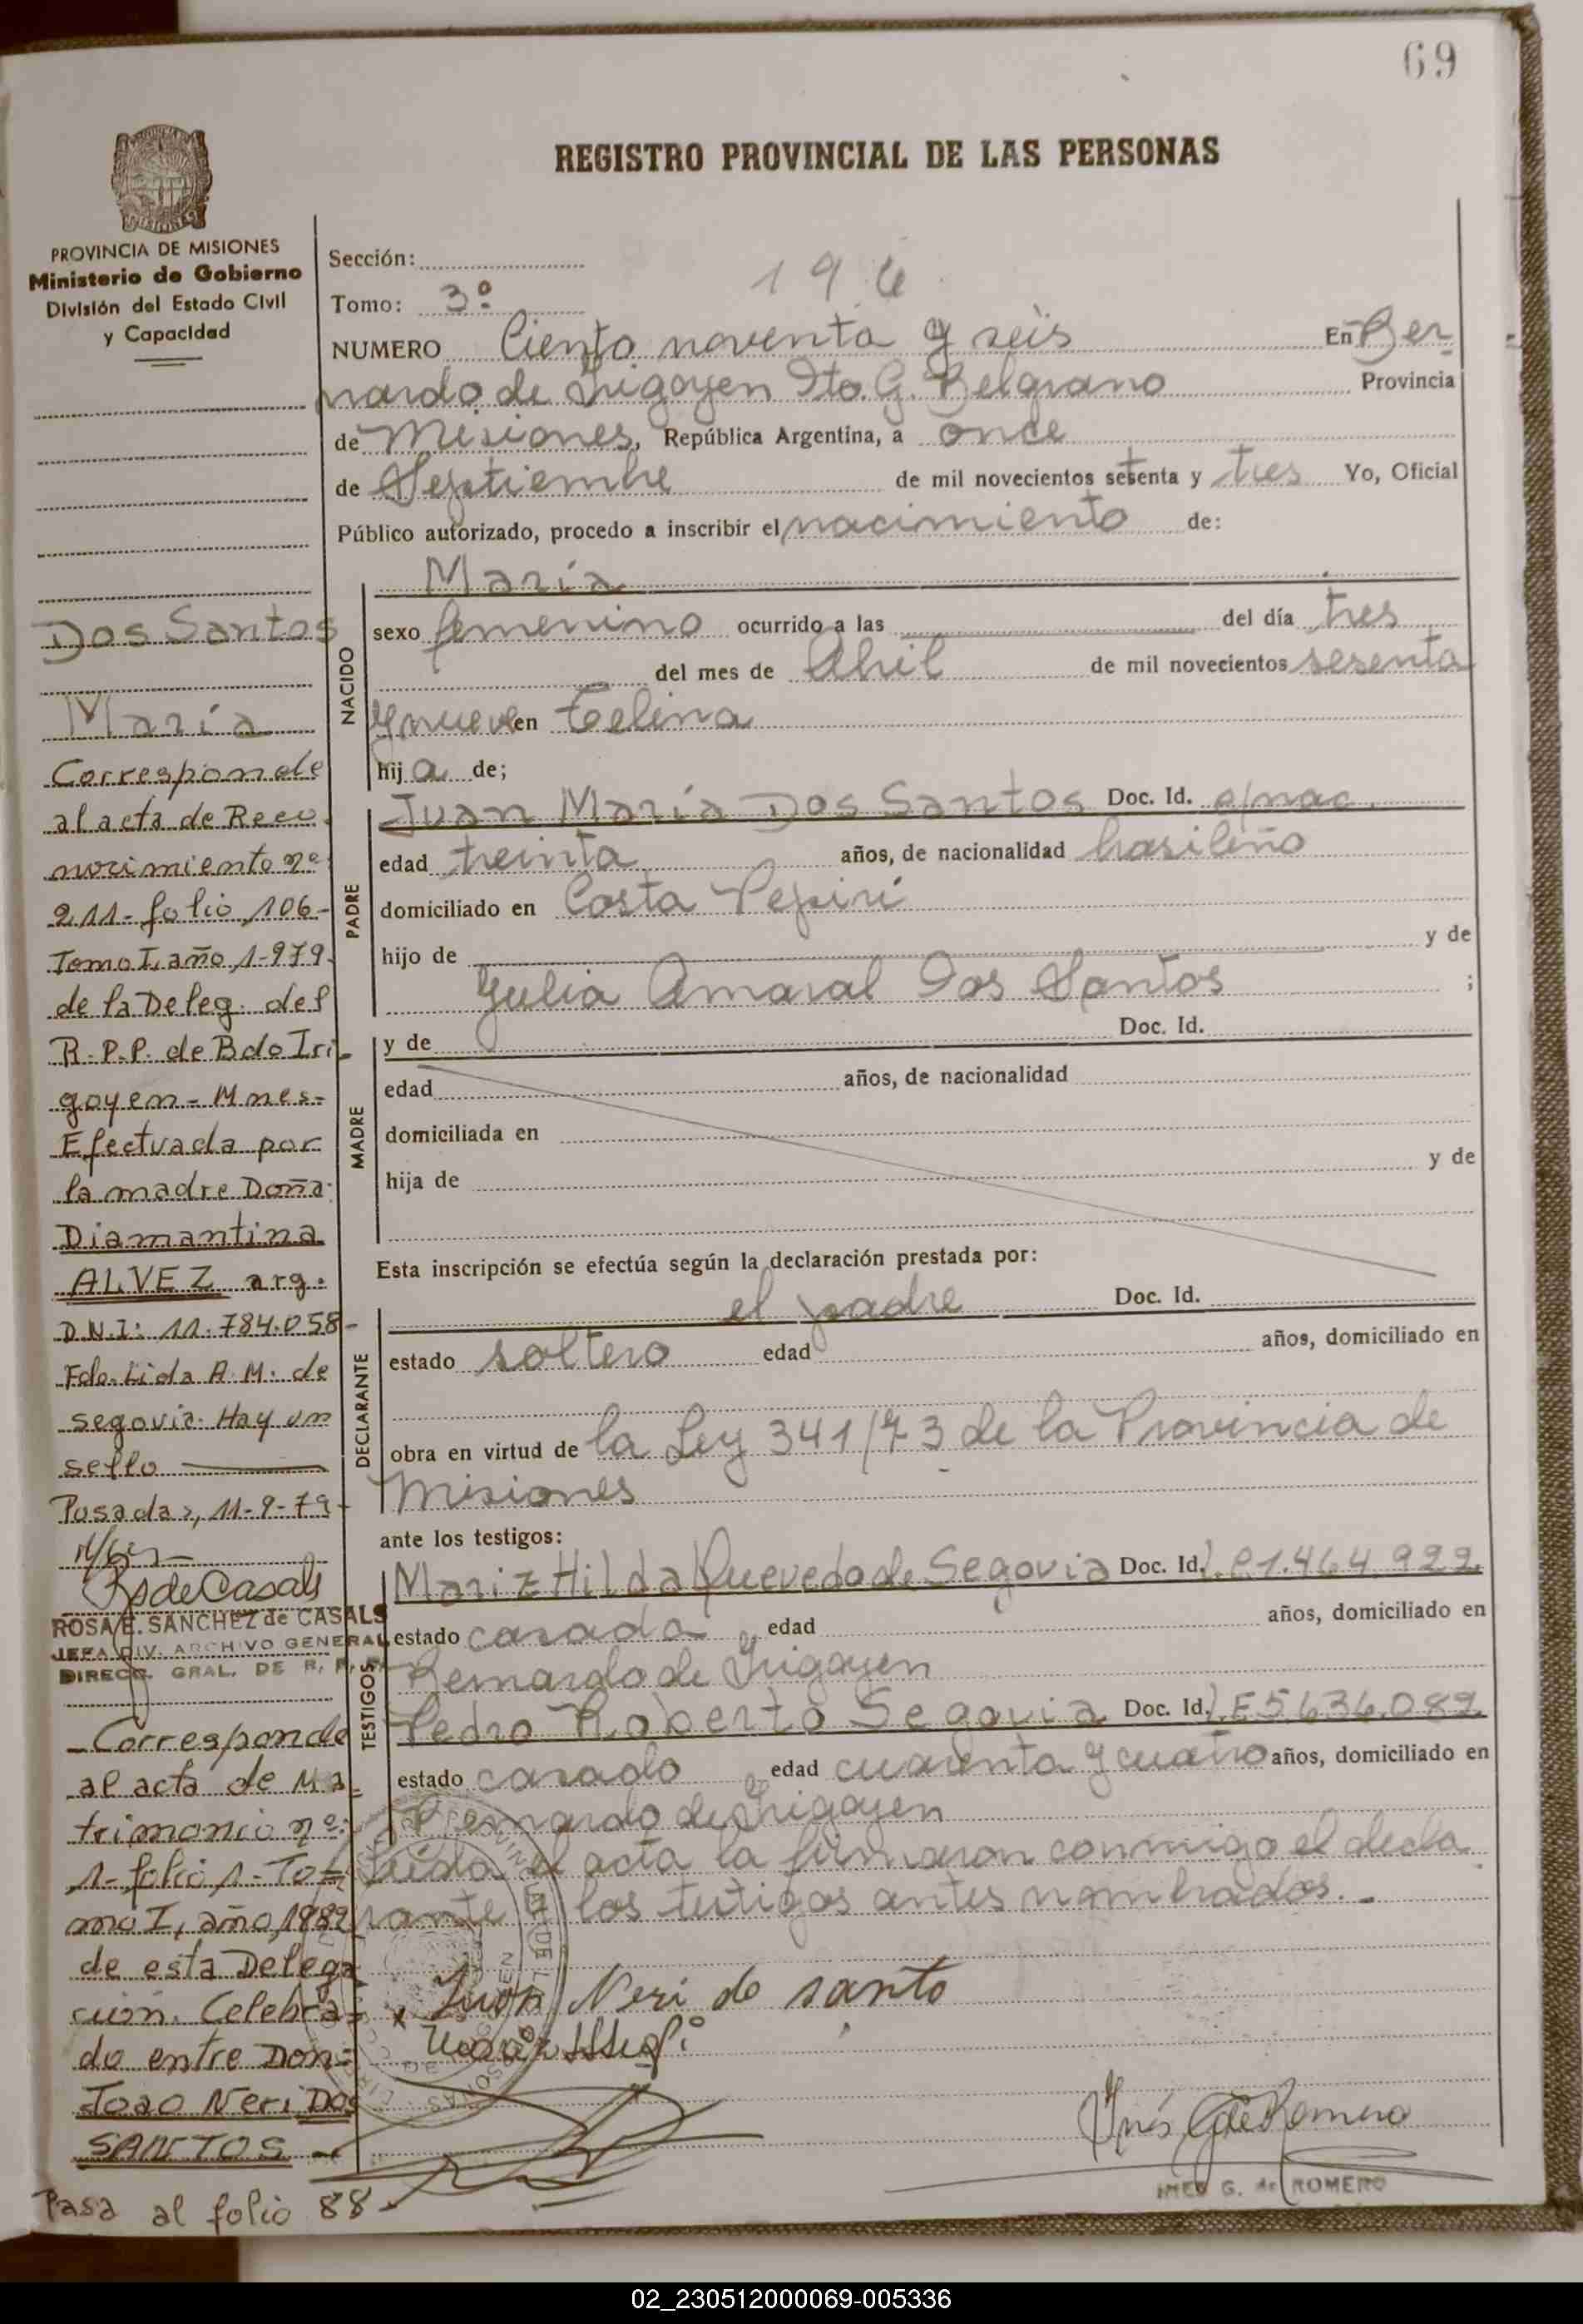 69
REGISTRO PROVINCIAL DE LAS PERSONAS
PROVINCIA DE MISIONES
Ministerio de Gobierno
División del Estado Civil
y Capacidad
Dos Santos
María
Corresponde
al acta de Reco
nocimiento nº
211- folio 106-
Tomo I, año 1.979.
de la Deleg. del
R.P.P. de Bdo Iri-
goyen - Mnes-
Efectuada por
la madre Doña
Diamantina
ALVEZ arg.
D.N.I: 11.784.058-
Fdo. Lida A.M. de
Segovia. Hay un
sello
Posadas, 11-9-79-
RsdeCasals
ROSA E. SANCHEZ de CASALS
JEFA DIV. ARCHIVO GENERAL
DIRECC. GRAL. DE R. P. P.
- Corresponde
al acta de Ma-
trimonio nº:
1- folio 1- To-
mo I, año 1989
de esta Delega
ción. Celebra-
do entre Don-
Joao Neri Dos
SANTOS -
Pasa al folio 88-
Sección:
196
Tomo: 3º
NUMERO Ciento noventa y seis En Ber
nardo de Irigoyen Dto. G. Belgrano Provincia
de Misiones, República Argentina, a once
de Septiembre de mil novecientos setenta y tres Yo, Oficial
Público autorizado, procedo a inscribir el nacimiento de:
María
NACIDO
sexo femenino ocurrido a las del día tres
del mes de Abril de mil novecientos sesenta
y nueve en
hija de;
PADRE
Juan María Dos Santos Doc. Id.
edad treinta años, de nacionalidad brasileño
domiciliado en Costa Pepirí
hijo de y de
Julia Amaral Dos Santos ;
MADRE
y de Doc. Id.
edad años, de nacionalidad
domiciliada en
hija de y de
Esta inscripción se efectúa según la declaración prestada por:
DECLARANTE
el padre Doc. Id.
estado soltero edad años, domiciliado en
obra en virtud de la Ley 341/73 de la Provincia de
Misiones
ante los testigos:
TESTIGOS
Hilda Quevedo de Segovia Doc. Id. 1.464.922.
estado casada edad años, domiciliado en
Bernardo de Irigoyen
Pedro Roberto Segovia Doc. Id. L.E 5.636.082
estado casado edad cuarenta y cuatro años, domiciliado en
Bernardo de Irigoyen
Leída el acta la firmaron conmigo el decla
rante y los testigos antes nombrados.-
x Juan Neri do santo
Inés G de Romero
INES G. de ROMERO
02_230512000069-005336